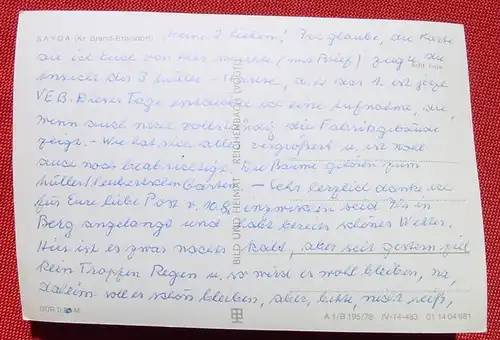 SAYDA (Kr. Brand-Erbisdorf) Meine 2 Lieben! Ich glaube, die Karte
die ich Euch von hier sandte (ins Brief) zeigt die
Ansicht des 3 Müller-Hauses, d. h. das 1. ist jetzt
VEB. Dieser Tage entdeckte ich eine Aufnahme, die,
wenn auch nicht vollständig die Fabrikgebäude
zeigt. – Wie hat sich alles vergrößert u. ist wohl
auch noch beabsichtigt. Die Bäume gehören zum
Müller/ Garten. – Sehr herzlich danke ich
für Eure liebe Post v. 10.8. inzwischen seid Ihr in
Berg angelangt und habt bereits schönes Wetter.
Hier ist es zwar nachts kalt, aber seit gestern fiel
kein Tropfen Regen u. so wird es wohl bleiben, na,
daheim soll es schön bleiben, aber, bitte, nicht heiß,
BILD UND HEIMAT REICHENBACH (VOGTL)
DDR M
A 1/B 195/78 IV-14-483 01 14 04 681